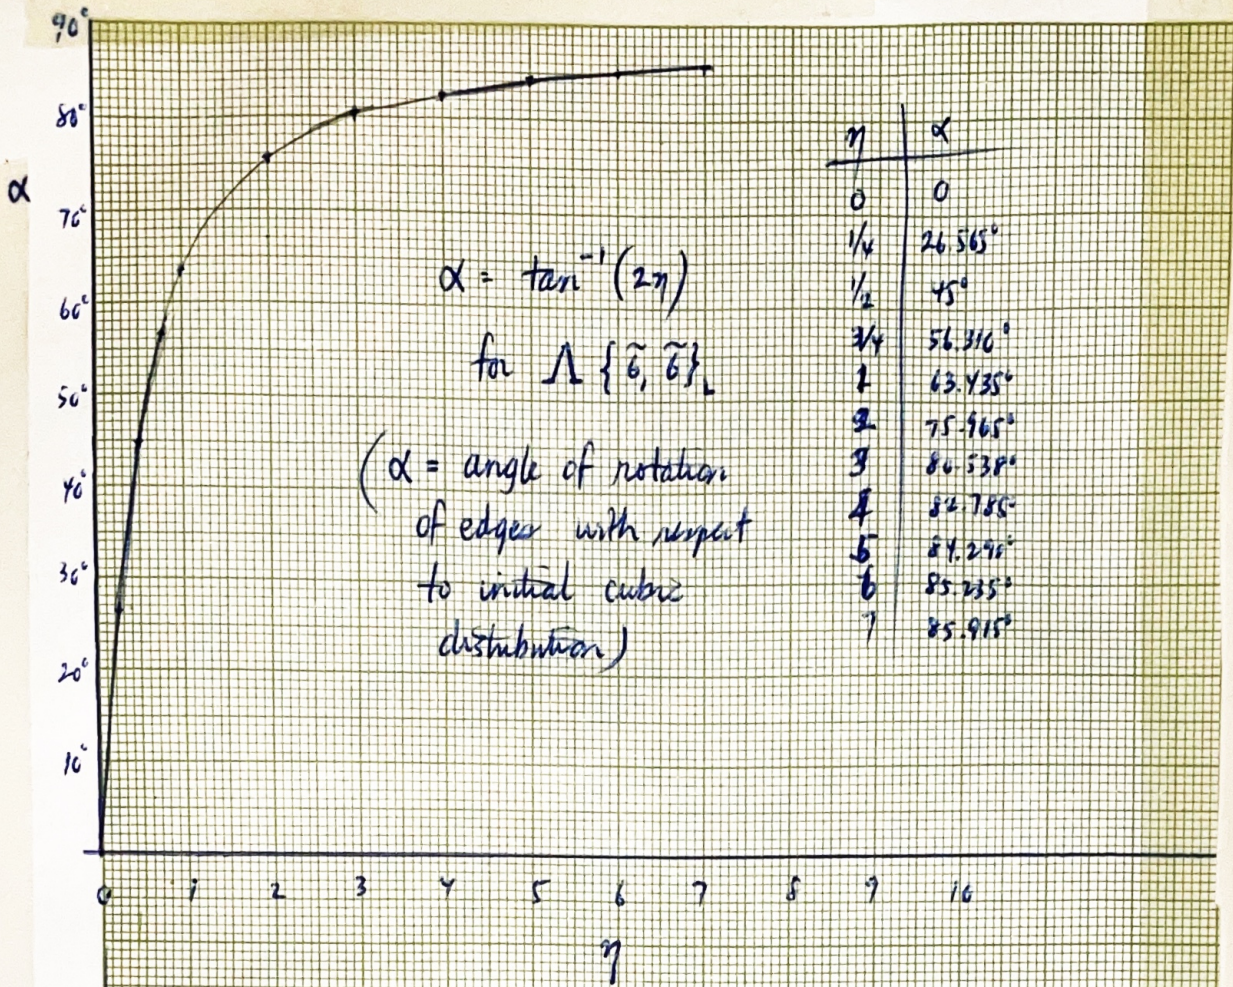 90°
80°
α
70°
60°
50°
40°
30°
20°
10°
0 1 2 3 4 5 6 7 8 9 10
η
α = tan⁻¹(2η)
for Λ {6̃, 6̃}L
(α = angle of rotation
of edges with respect
to initial cubic
distribution)
η α
0 0
1/4 26.565°
1/2 45°
3/4 56.310°
1 63.435°
2 75.965°
3 80.538°
4 82.785°
5 84.290°
6 85.235°
7 85.915°